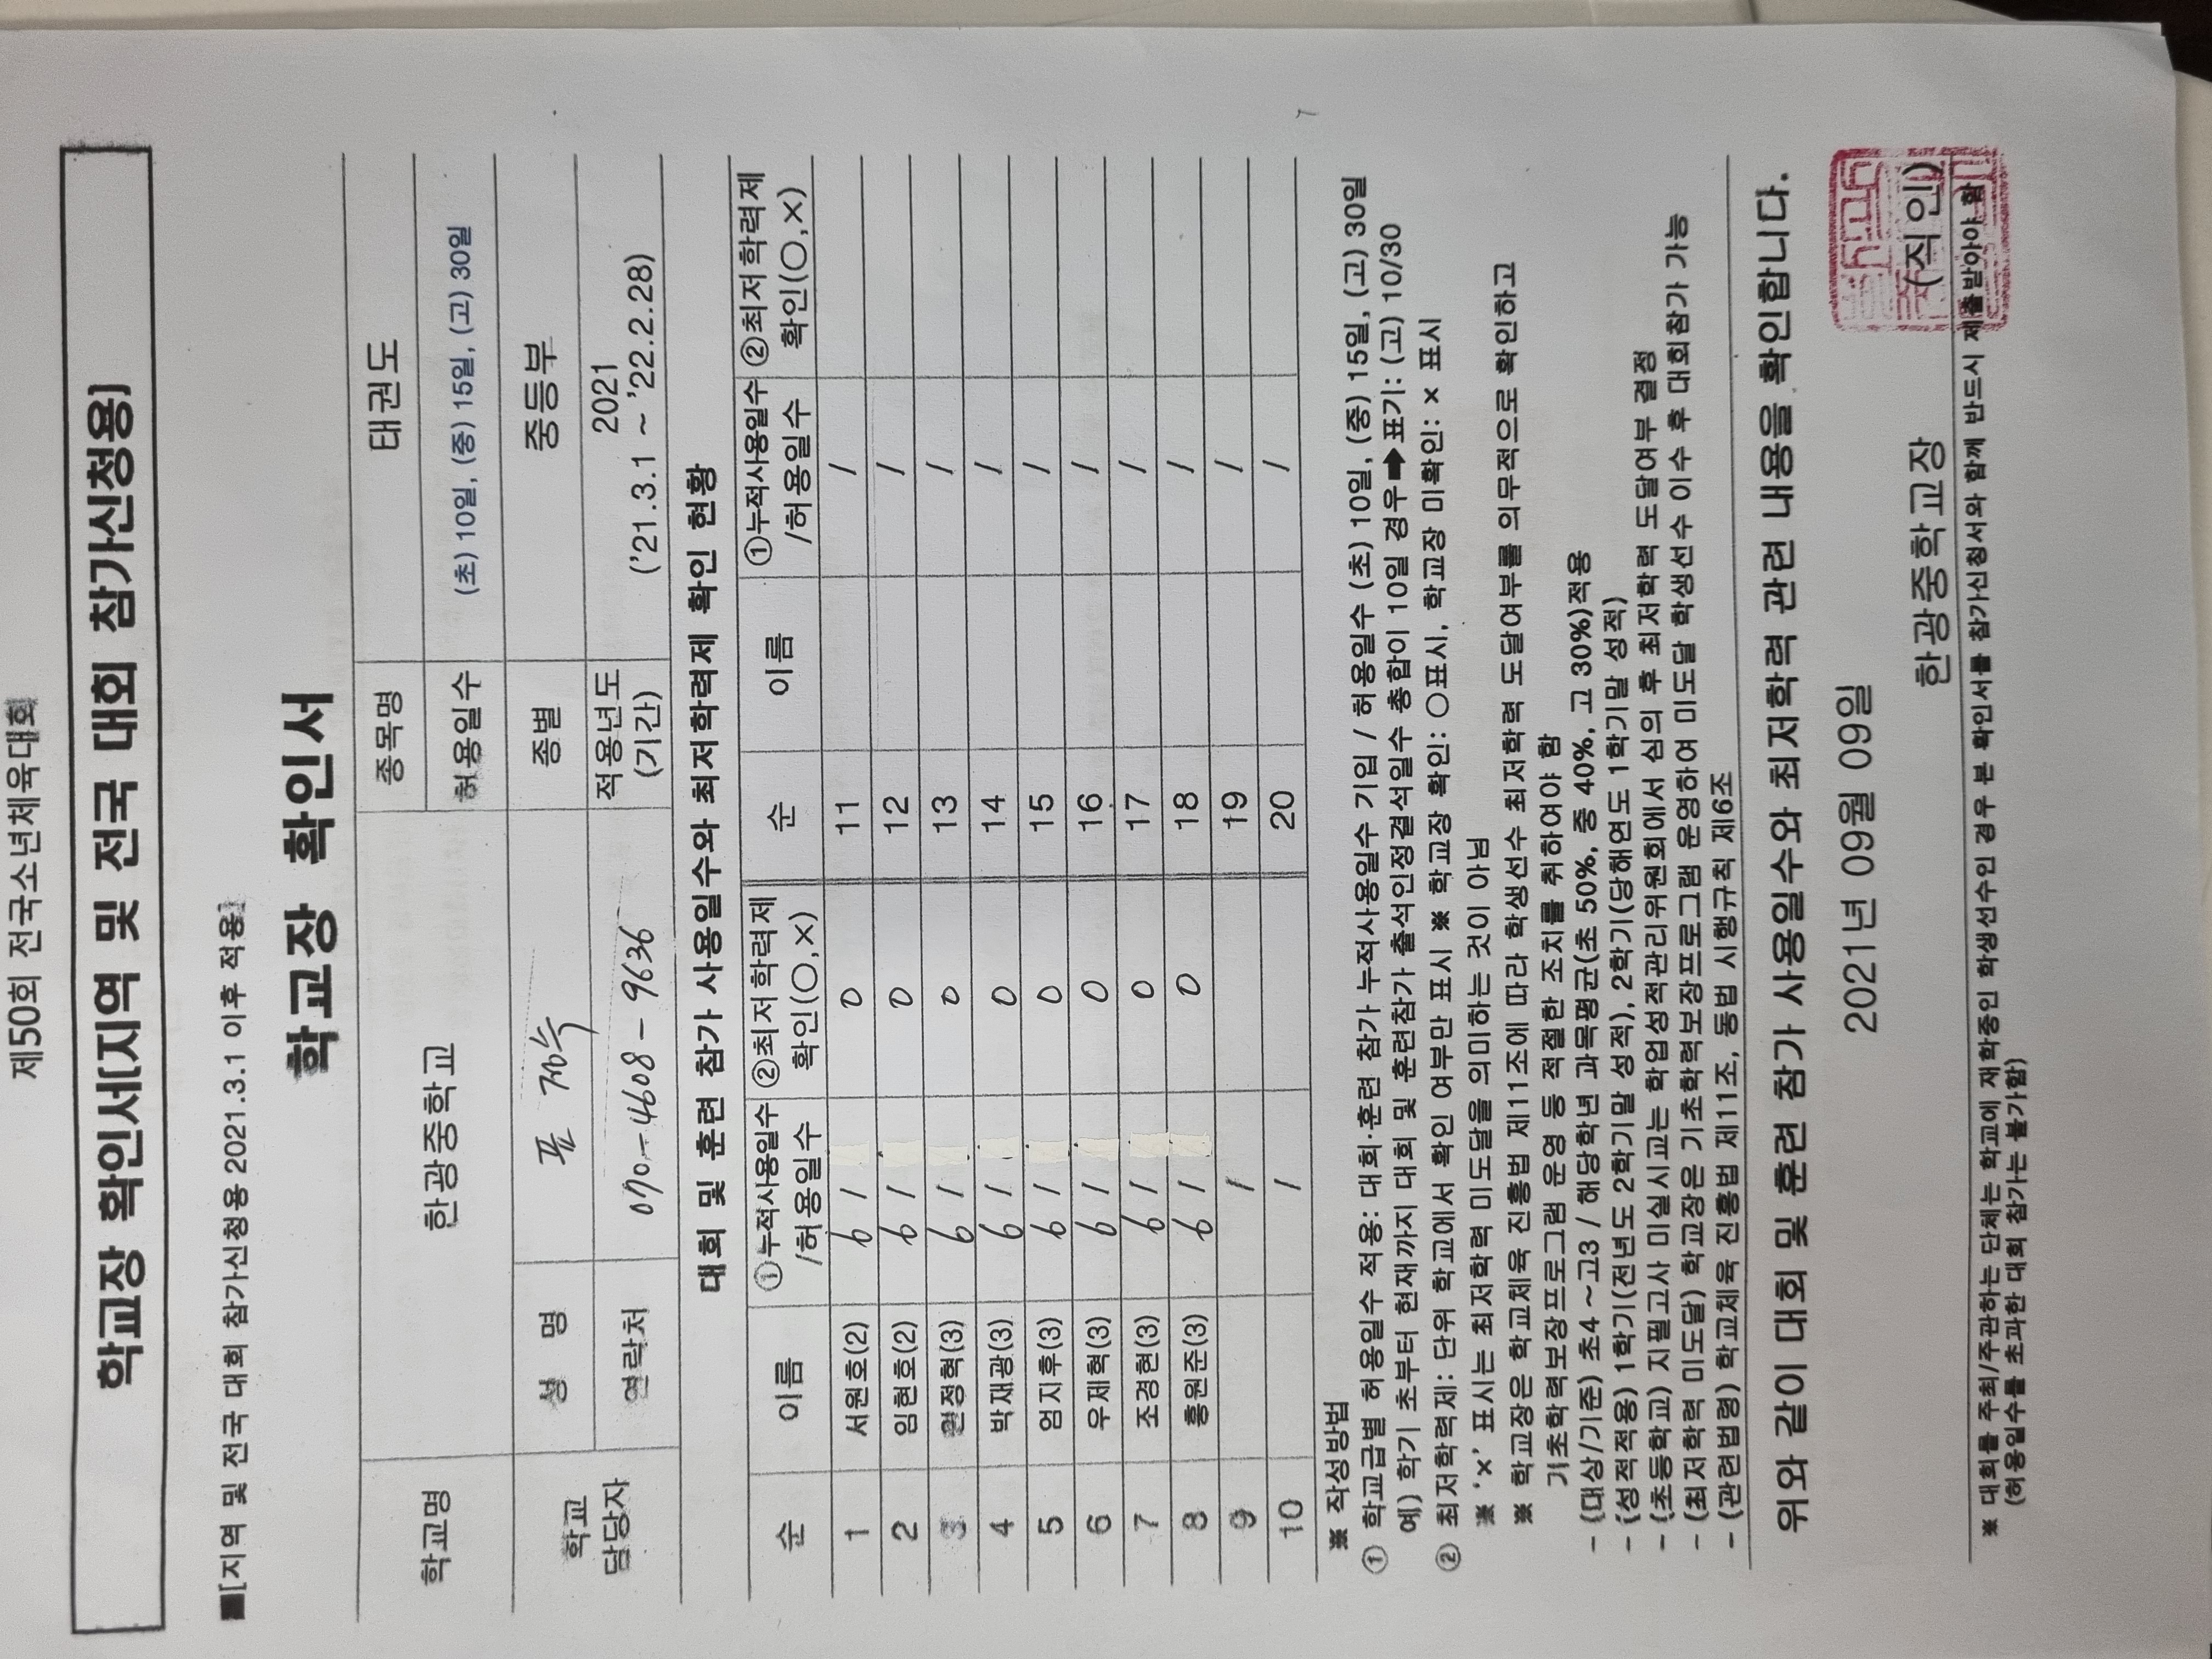 제50회 전국소년체육대회
학교장 확인서[지역 및 전국 대회 참가신청용]
■[지역 및 전국 대회 참가신청용 2021.3.1 이후 적용]
학교장 확인서
학교명 한광중학교 종목명 태권도
허용일수 (초) 10일, (중) 15일, (고) 30일
학교 담당자 성 명 종별 중등부
연락처 070-4608-9636 적용년도 (기간) 2021 ('21.3.1 ~ '22.2.28)
대회 및 훈련 참가 사용일수와 최저학력제 확인 현황
순 이름 ①누적사용일수 /허용일수 ②최저학력제 확인(○,×) 순 이름 ①누적사용일수 /허용일수 ②최저학력제 확인(○,×)
1 서원호(2) 6 / 0 11 /
2 임현호(2) 6 / 0 12 /
3 정혁(3) 6 / 0 13 /
4 박재광(3) 6 / 0 14 /
5 엄지후(3) 6 / 0 15 /
6 우제혁(3) 6 / 0 16 /
7 조경현(3) 6 / 0 17 /
8 홍원준(3) 6 / 0 18 /
9 / 19 /
10 / 20 /
※ 작성방법
① 학교급별 허용일수 적용: 대회·훈련 참가 누적사용일수 기입 / 허용일수 (초) 10일, (중) 15일, (고) 30일
예) 학기 초부터 현재까지 대회 및 훈련참가 출석인정결석일수 총합이 10일 경우➡표기: (고) 10/30
② 최저학력제: 단위 학교에서 확인 여부만 표시 ※ 학교장 확인: ○표시, 학교장 미확인: × 표시
※ '×' 표시는 최저학력 미도달을 의미하는 것이 아님
※ 학교장은 학교체육 진흥법 제11조에 따라 학생선수 최저학력 도달여부를 의무적으로 확인하고
기초학력보장프로그램 운영 등 적절한 조치를 취하여야 함
- (대상/기준) 초4 ~고3 / 해당학년 과목평균(초 50%, 중 40%, 고 30%)적용
- (성적적용) 1학기(전년도 2학기말 성적), 2학기(당해연도 1학기말 성적)
- (초등학교) 지필고사 미실시교는 학업성적관리위원회에서 심의 후 최저학력 도달여부 결정
- (최저학력 미도달) 학교장은 기초학력보장프로그램 운영하여 미도달 학생선수 이수 후 대회참가 가능
- (관련법령) 학교체육 진흥법 제11조, 동법 시행규칙 제6조
위와 같이 대회 및 훈련 참가 사용일수와 최저학력 관련 내용을 확인합니다.
2021년 09월 09일
한광중학교장 (직인)
※ 대회를 주최/주관하는 단체는 학교에 재학중인 학생선수인 경우 본 확인서를 참가신청서와 함께 반드시 제출받아야 함
(허용일수를 초과한 대회 참가는 불가함)